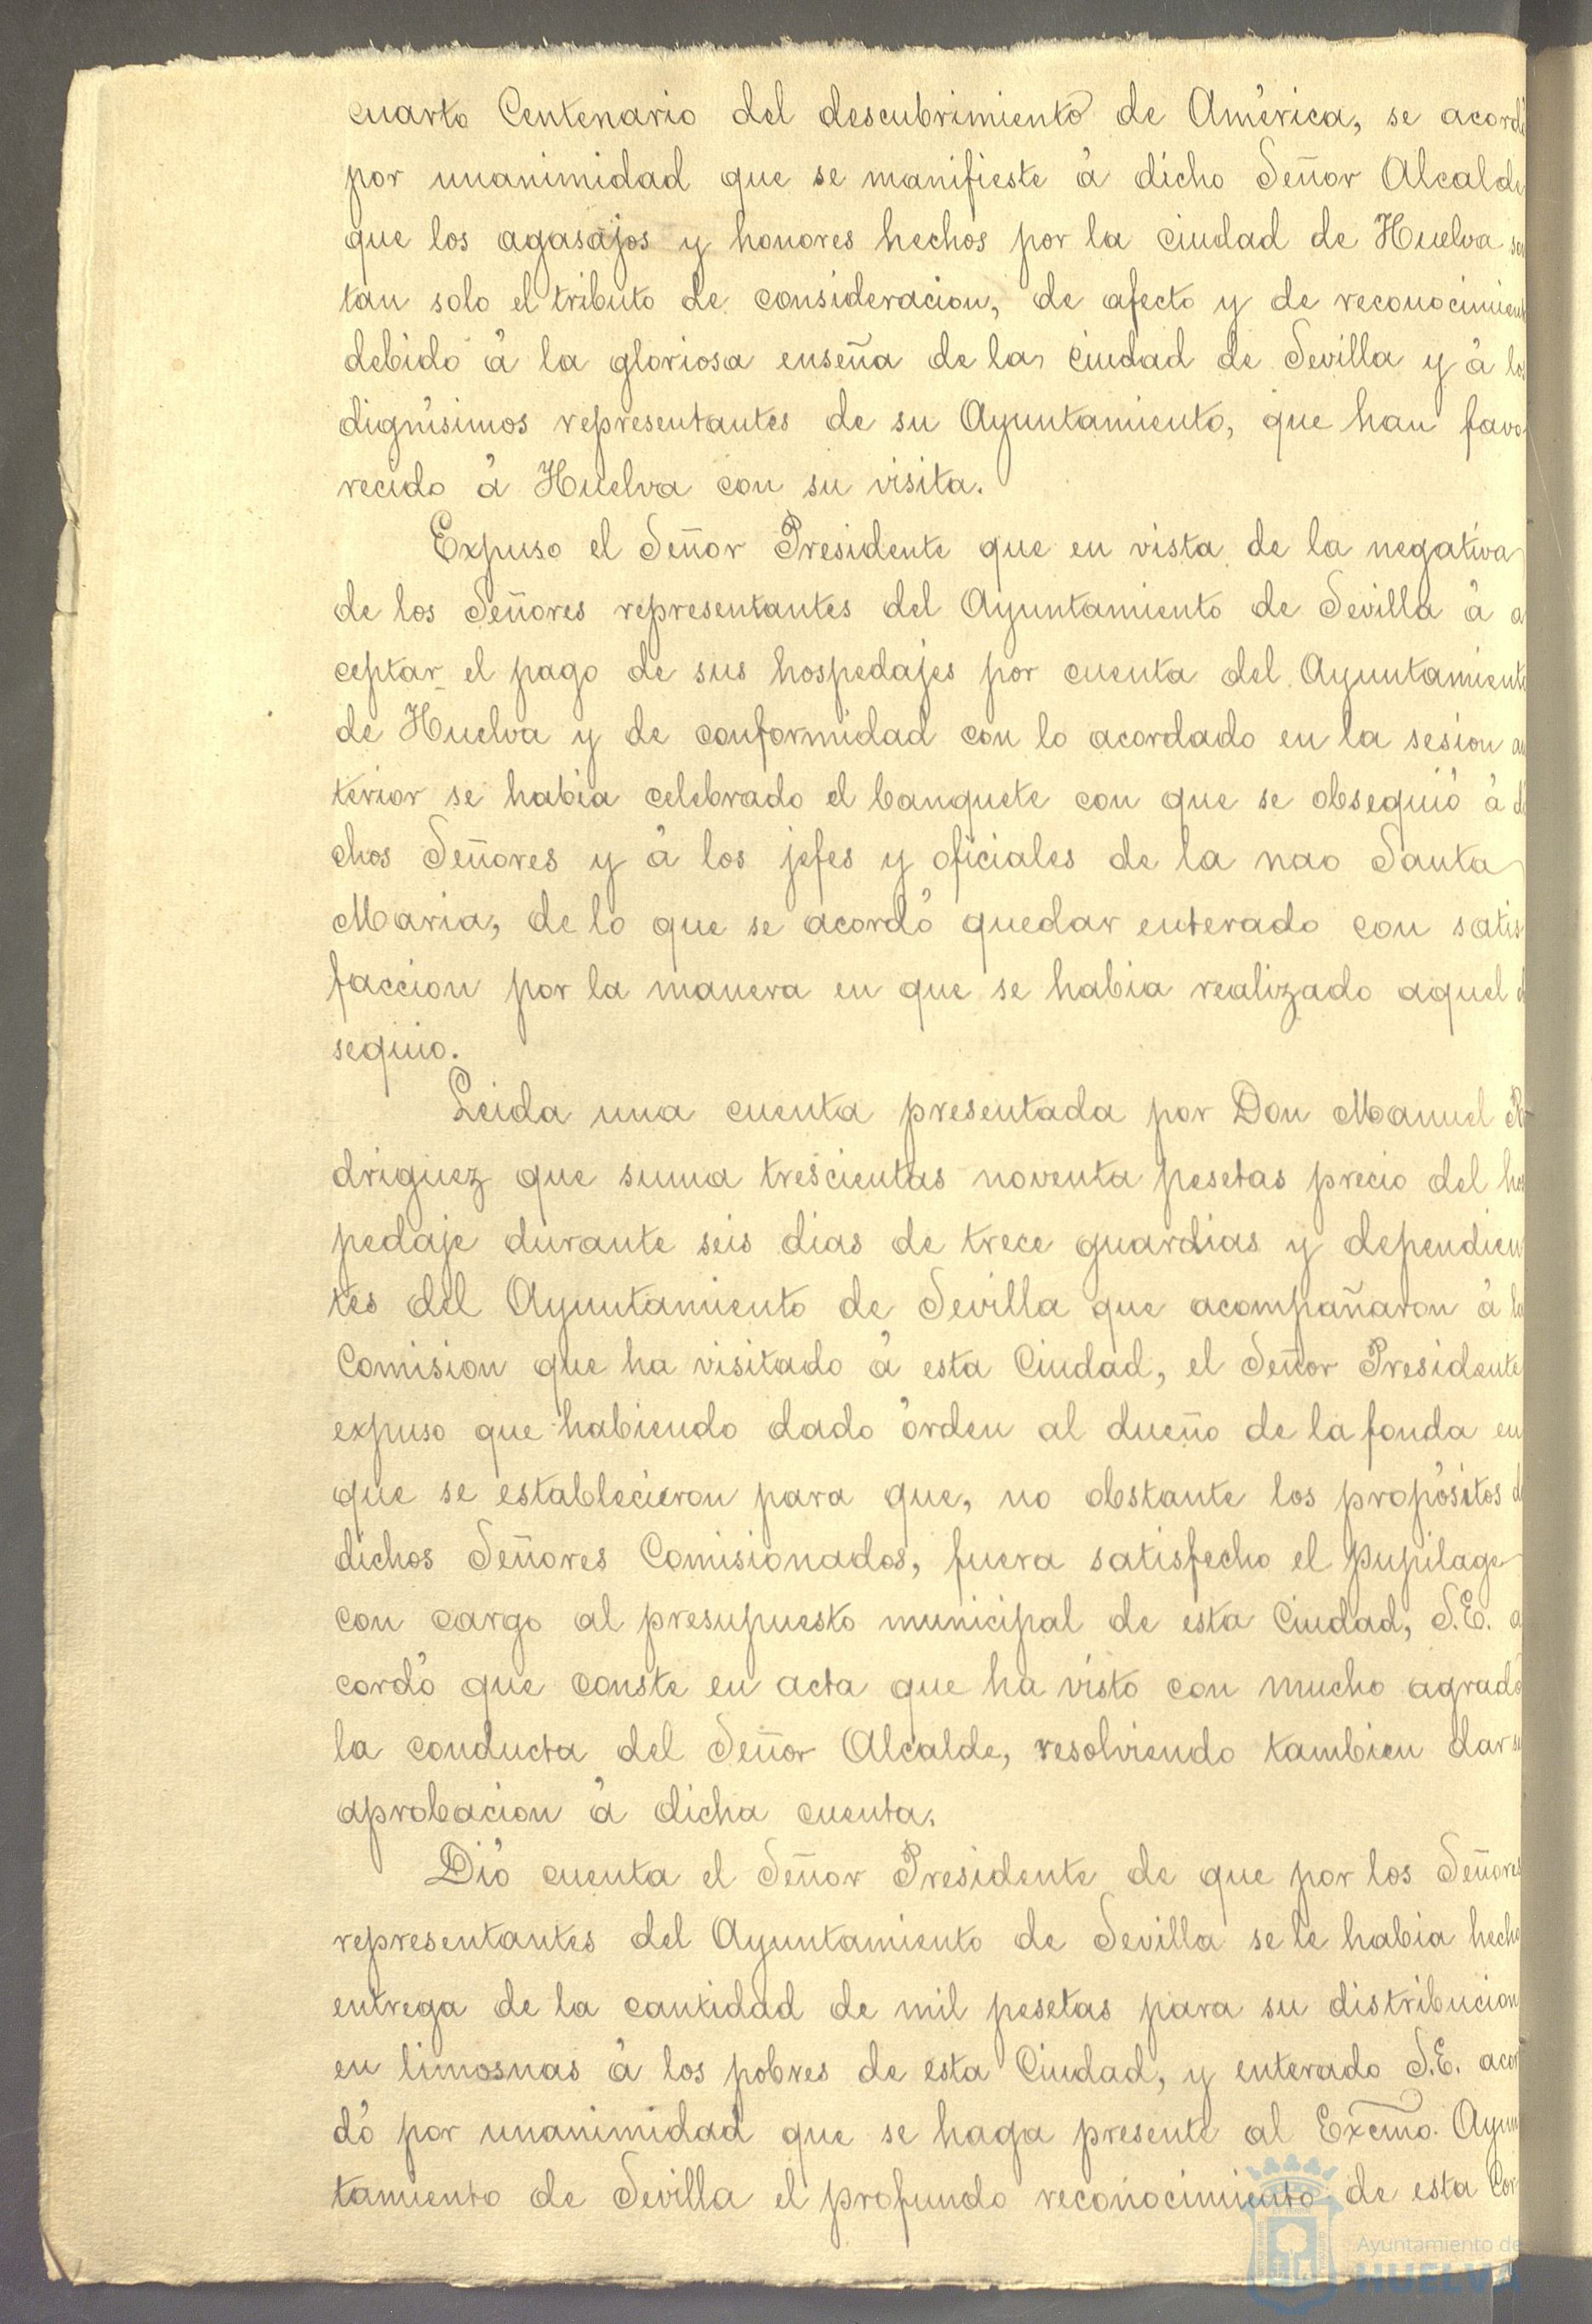 cuarto Centenario del descubrimiento de América, se acordó
por unanimidad que se manifieste á dicho Señor Alcalde
que los agasajos y honores hechos por la ciudad de Huelva son
tan solo el tributo de consideracion, de afecto y de reconocimient
debido á la gloriosa enseña de la ciudad de Sevilla y á los
dignísimos representantes de su Ayuntamiento, que han favo
recido á Huelva con su visita.
Expuso el Señor Presidente que en vista de la negativa
de los Señores representantes del Ayuntamiento de Sevilla á a
ceptar el pago de sus hospedajes por cuenta del Ayuntamiento
de Huelva y de conformidad con lo acordado en la sesion an
terior se habia celebrado el banquete con que se obsequió á di
chos Señores y á los jefes y oficiales de la nao Santa
Maria, de lo que se acordó quedar enterado con satis
faccion por la manera en que se habia realizado aquel ob
sequio.
Leida una cuenta presentada por Don Manuel Ro
driguez que suma trescientas noventa pesetas precio del hos
pedaje durante seis dias de trece guardias y dependien
tes del Ayuntamiento de Sevilla que acompañaron á la
Comision que ha visitado á esta Ciudad, el Señor Presidente
expuso que habiendo dado órden al dueño de la fonda en
que se establecieron para que, no obstante los propósitos de
dichos Señores Comisionados, fuera satisfecho el pupilage
con cargo al presupuesto municipal de esta Ciudad, S.E. a
cordó que conste en acta que ha visto con mucho agrado
la conducta del Señor Alcalde, resolviendo tambien dar su
aprobacion á dicha cuenta.
Dió cuenta el Señor Presidente de que por los Señores
representantes del Ayuntamiento de Sevilla se le habia hecho
entrega de la cantidad de mil pesetas para su distribucion
en limosnas á los pobres de esta Ciudad, y enterado S.E. acor
dó por unanimidad que se haga presente al Excmo. Ayun
tamiento de Sevilla el profundo reconocimiento de esta Cor
Ayuntamiento de
HUELVA